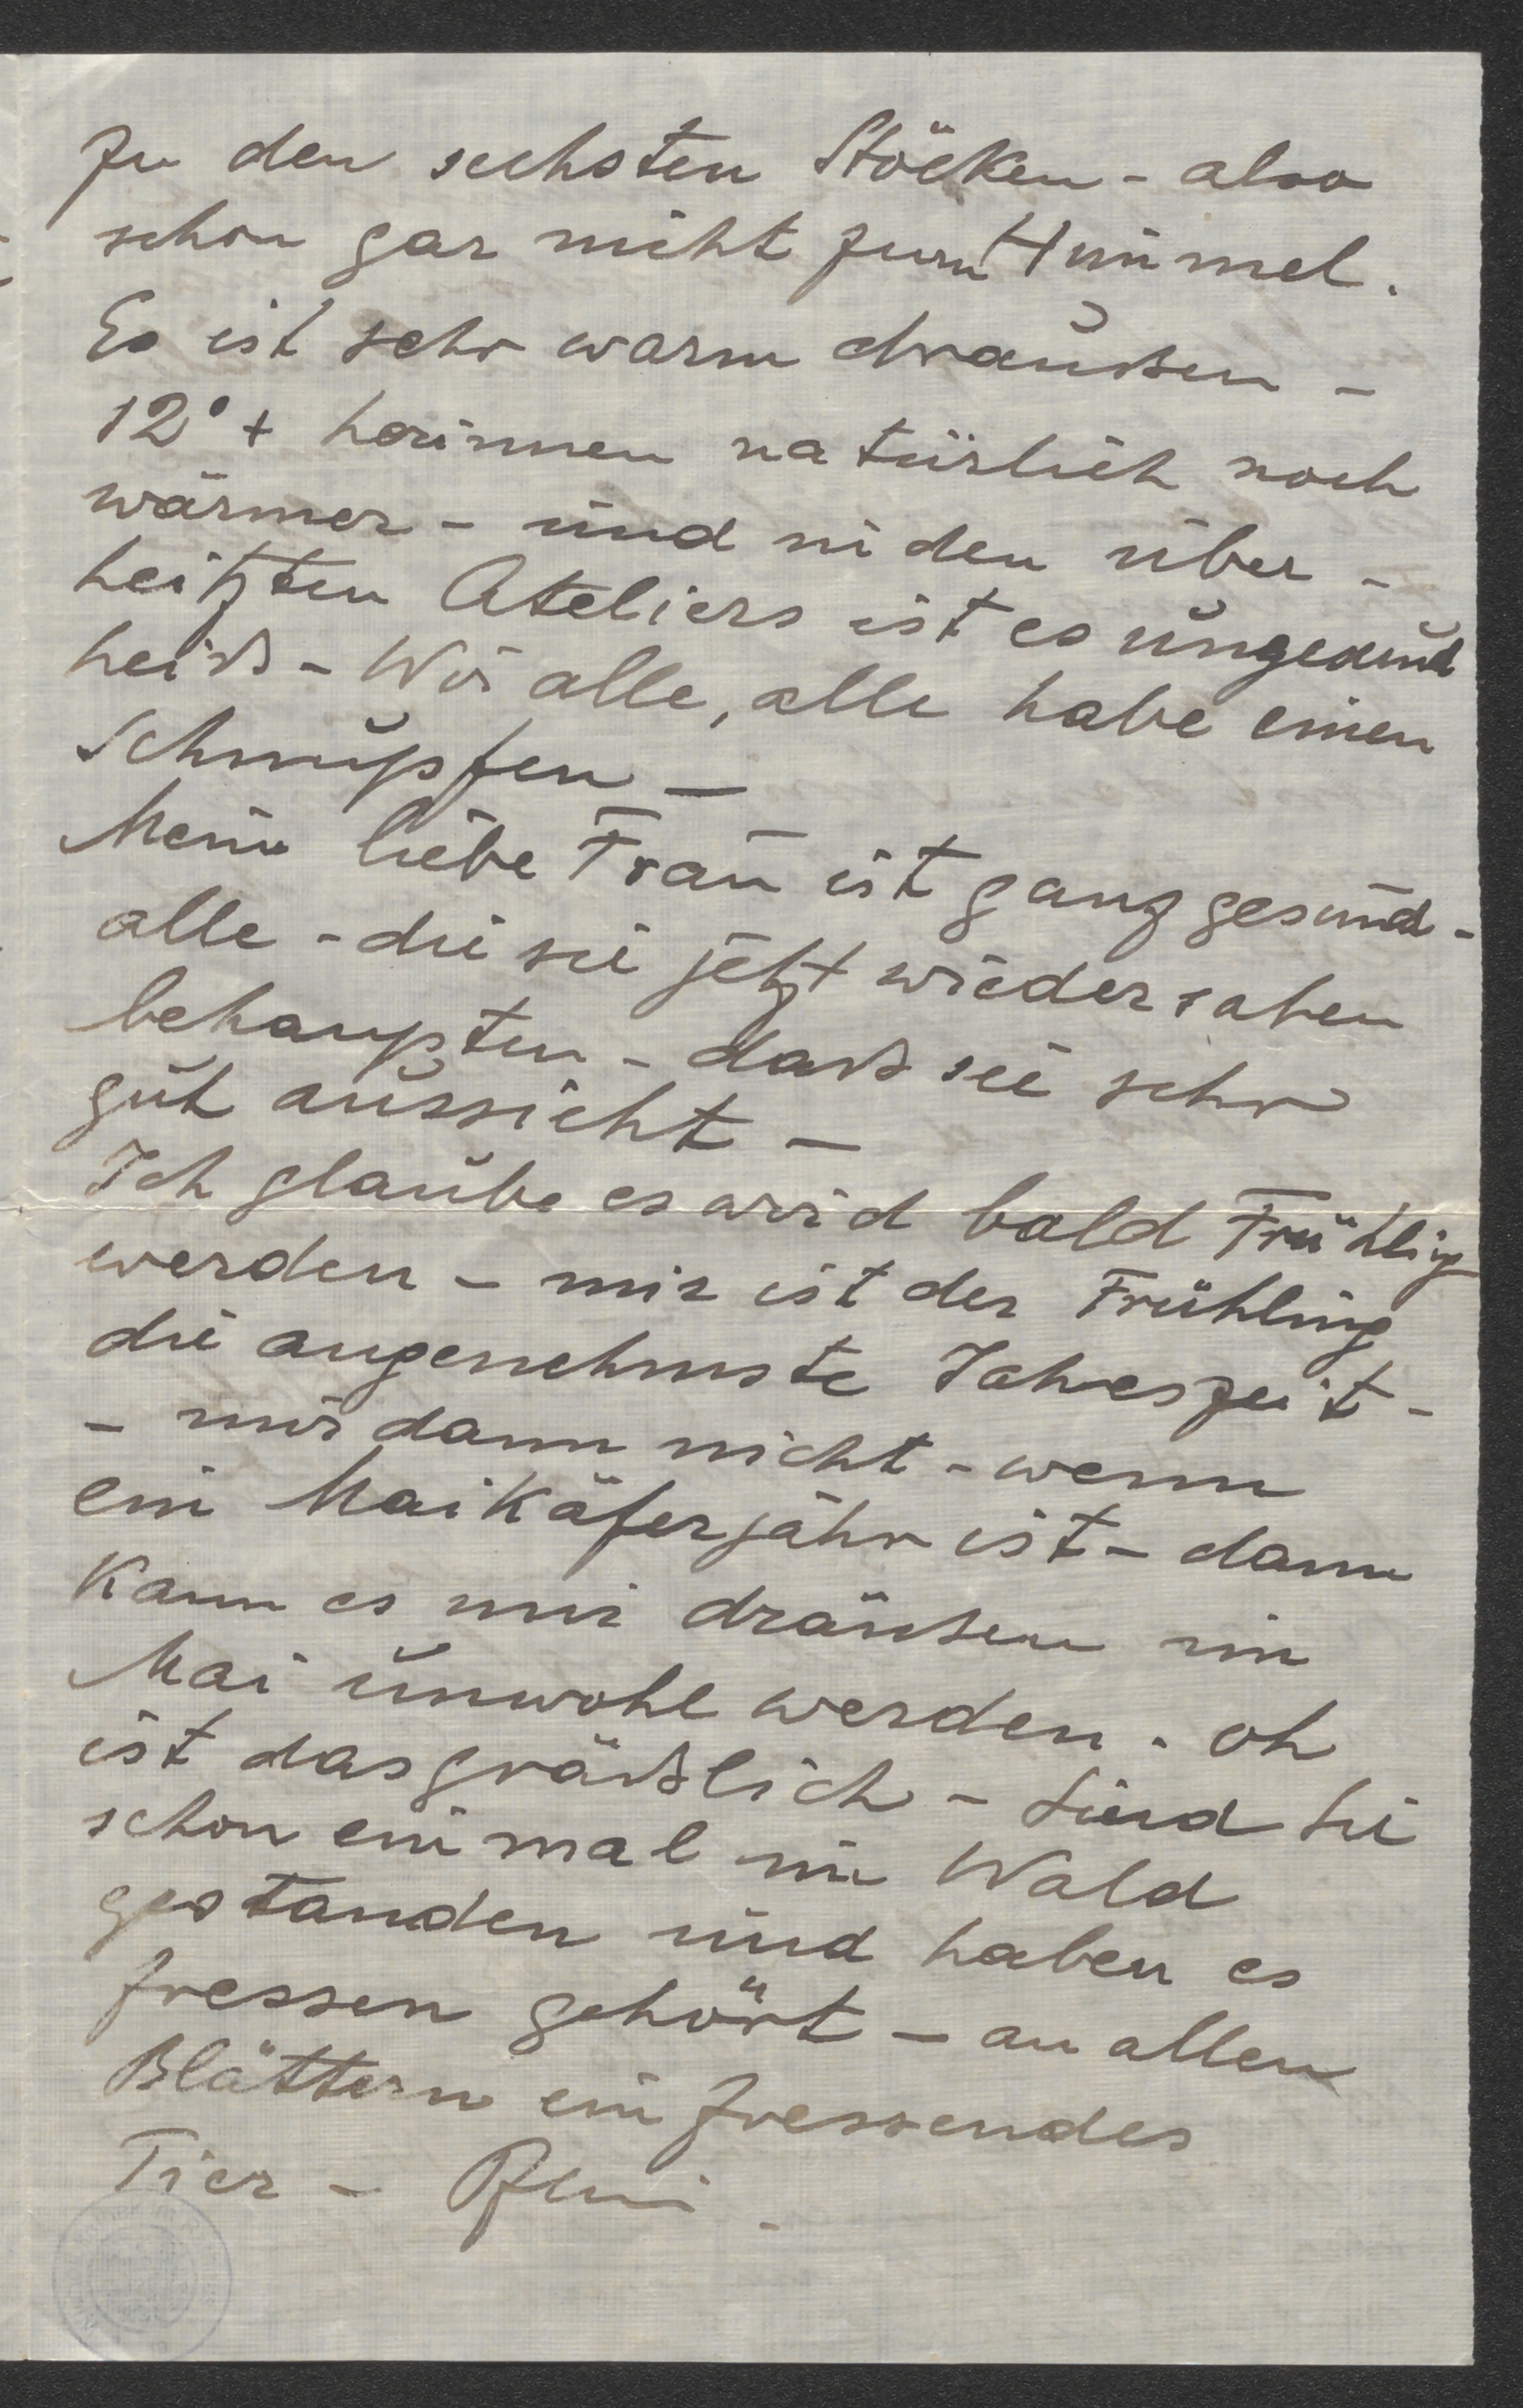 zu den sechsten Stöcken - also
schon gar nicht zum Himmel.
Es ist sehr warm draußen -
12° + herinnen natürlich noch
wärmer - und in den über-
heitzten Ateliers ist es ungesund
heiß - Wir alle, alle habe einen
Schnupfen -
Meine liebe Frau ist ganz gesund -
alle - die sie jetzt wiedersahen
behaupten - daß sie sehr
gut aussieht -
Ich glaube es wird bald Frühling
werden - mir ist der Frühling
die angenehmste Jahreszeit -
- nur dann nicht - wenn
ein Maikäferjahr ist - dann
kann es mir draußen im
Mai unwohl werden. oh
ist das gräßlich - Sind Sie
schon einmal im Wald
gestanden und haben es
fressen gehört - an allen
Blättern ein fressendes
Tier - Pfui -